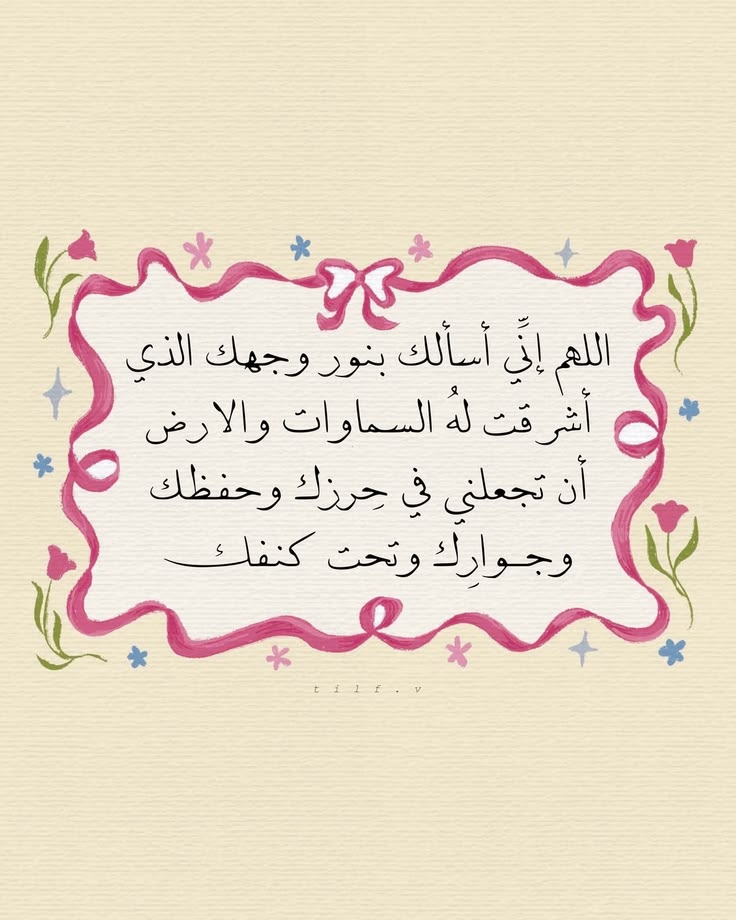 اللهم إنِّي أسألك بنور وجهك الذي
أشرقت لهُ السماوات والارض
أن تجعلني في حِرزك وحفظك
وجوارِك وتحت كنفك
tilf.v